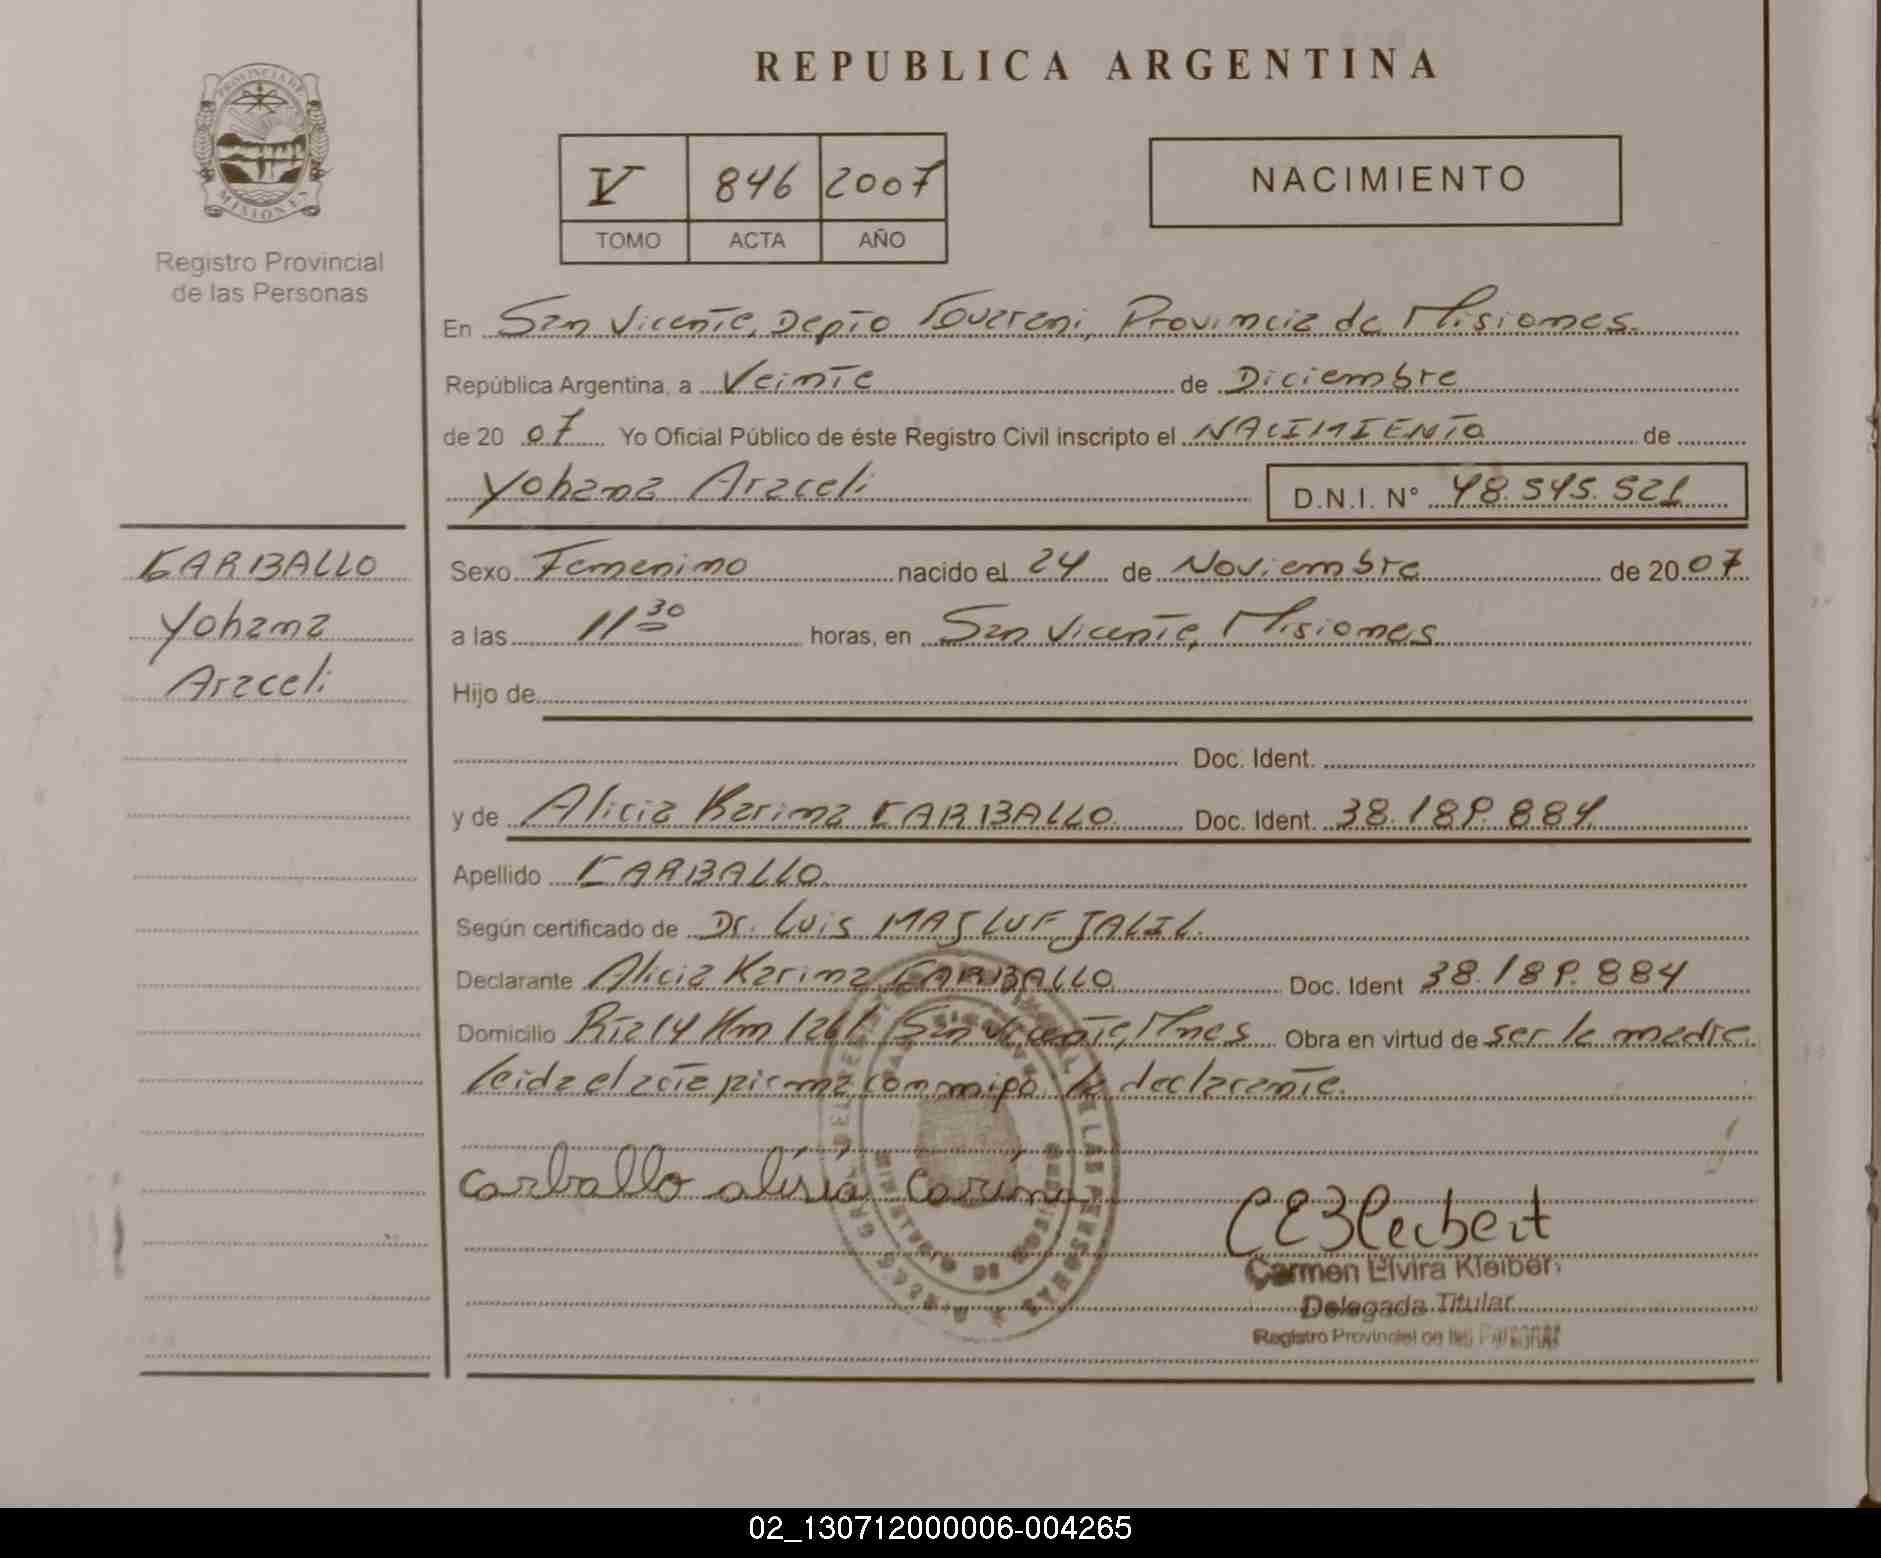 REPUBLICA ARGENTINA
PROVINCIA DE
MISIONES
Registro Provincial
de las Personas
V 846 2007
TOMO ACTA AÑO
NACIMIENTO
En San Vicente, Depto Guarani, Provincia de Misiones.
República Argentina, a Veinte de Diciembre
de 20 07 Yo Oficial Público de éste Registro Civil inscripto el NACIMIENTO de
Yohana Araceli D.N.I. N° 48.545.521
CARBALLO
Yohana
Araceli
Sexo Femenino nacido el 24 de Noviembre de 20 07
a las 11 30 horas, en San Vicente, Misiones
Hijo de
Doc. Ident.
y de Alicia Karina CARBALLO Doc. Ident. 38.189.884
Apellido CARBALLO
Según certificado de Dr. Luis MASLUF JALIL.
Declarante Alicia Karina CARBALLO Doc. Ident 38.189.884
Domicilio Rta 14 Km 1261 San Vicente, Mnes Obra en virtud de ser la madre.
leida el acta firma conmigo la declarante.
carballo alisia carina
CEKleibert
Carmen Elvira Kleiber
Delegada Titular
Registro Provincial de las Personas
02_130712000006-004265